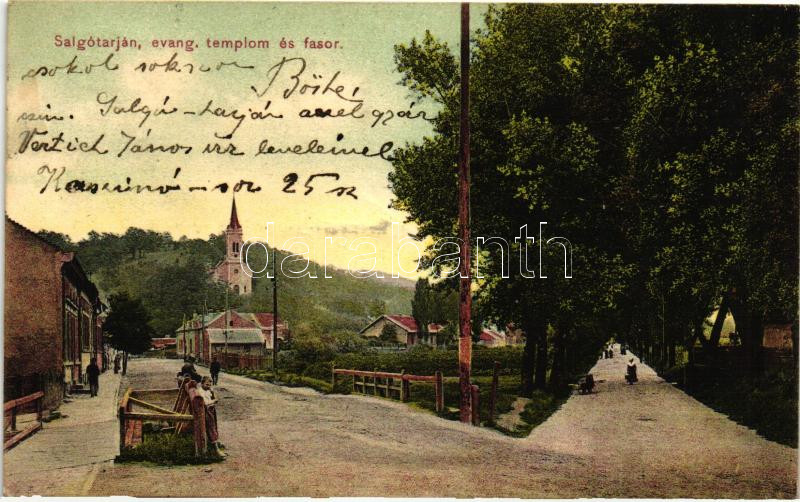 Salgótarján, evang. templom és fasor.
sokol sokszor Böské
Salgó-tarján aczél gyár
Vertich János
Kaszinó-sor 25
darabanth